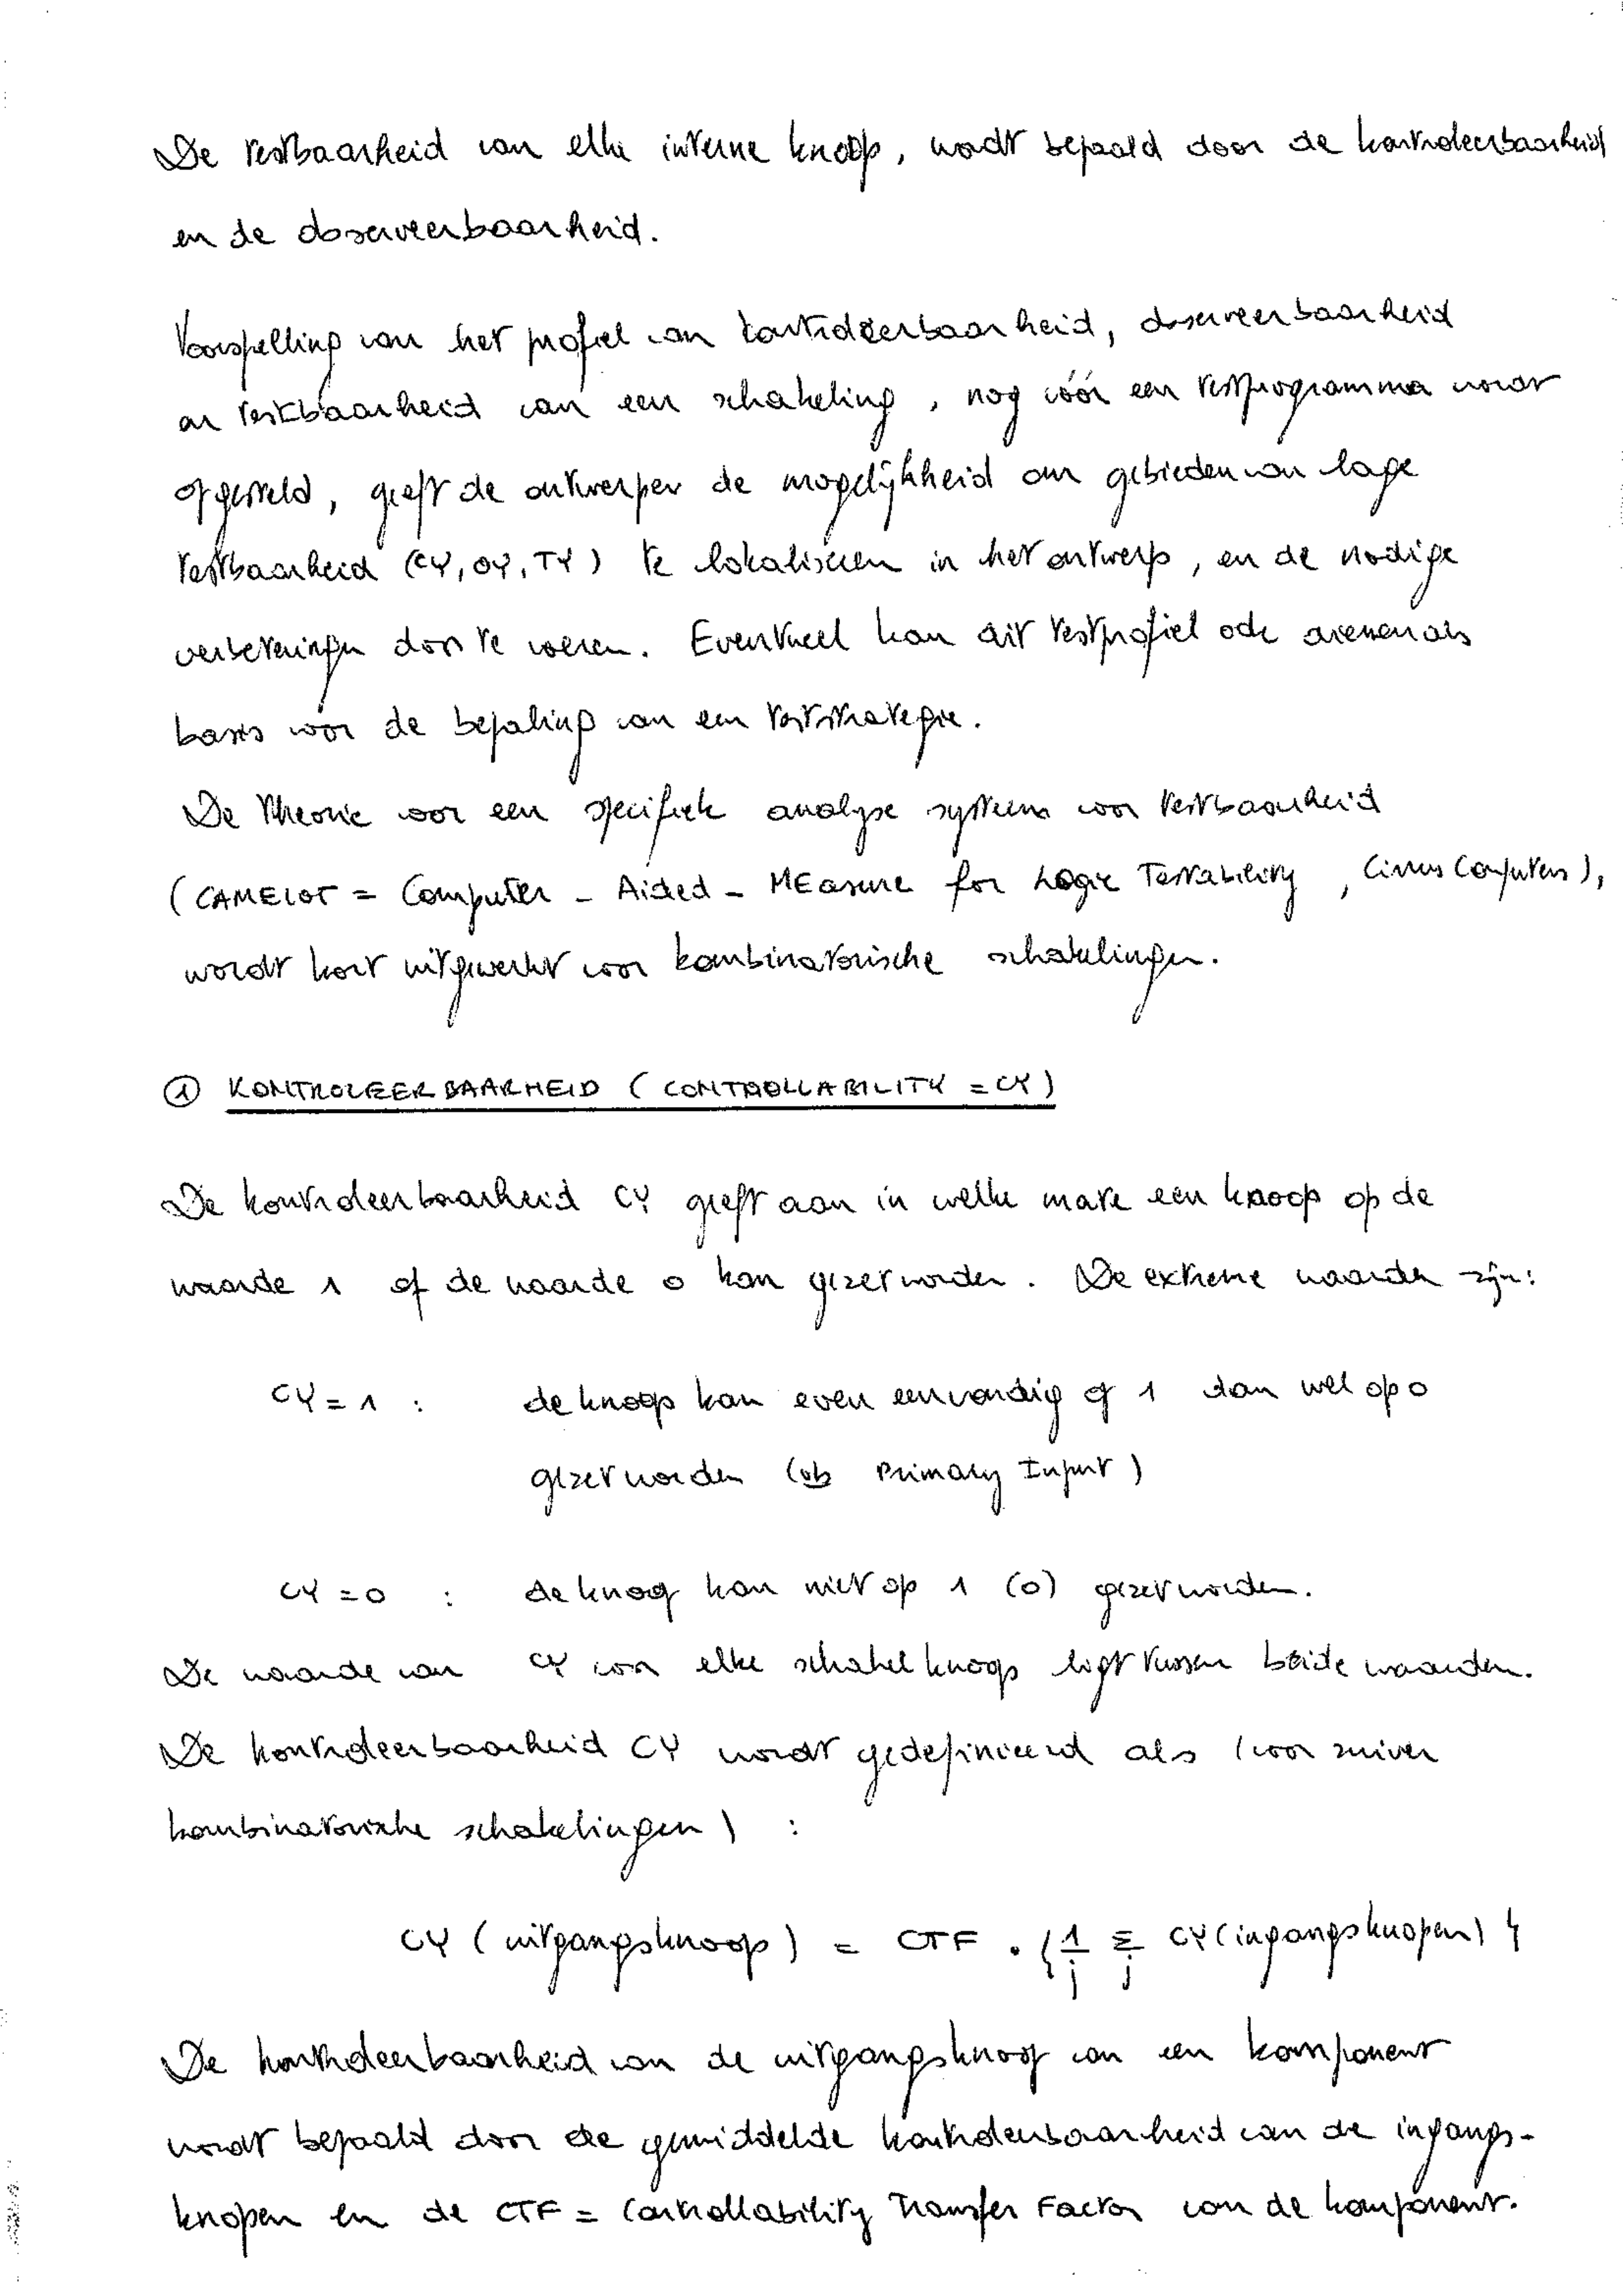 De testbaarheid van elke interne knoop, wordt bepaald door de kontroleerbaarheid
en de observeerbaarheid.
Voorspelling van het profiel van kontroleerbaarheid, observeerbaarheid
en testbaarheid van een schakeling, nog vóór een testprogramma wordt
opgesteld, geeft de ontwerper de mogelijkheid om gebieden van lage
testbaarheid (CY, OY, TY) te lokaliseren in het ontwerp, en de nodige
verbeteringen door te voeren. Eventueel kan dit testprofiel ook dienen als
basis voor de bepaling van een teststrategie.
De theorie voor een specifiek analyse systeem voor testbaarheid
(CAMELOT = Computer - Aided - MEasure for LOgic Testability, Cirrus Computers),
wordt kort uitgewerkt voor kombinatorische schakelingen.
① KONTROLEERBAARHEID (CONTROLLABILITY = CY)
De kontroleerbaarheid CY geeft aan in welke mate een knoop op de
waarde 1 of de waarde 0 kan gezet worden. De extreme waarden zijn:
CY = 1 : de knoop kan even eenvoudig op 1 dan wel op 0
gezet worden (vb Primary Input)
CY = 0 : de knoop kan niet op 1 (0) gezet worden.
De waarde van CY voor elke schakelknoop ligt tussen beide waarden.
De kontroleerbaarheid CY wordt gedefinieerd als (voor zuiver
kombinatorische schakelingen) :
CY (uitgangsknoop) = CTF . { 1/j Σ j CY (ingangsknopen) }
De kontroleerbaarheid van de uitgangsknoop van een komponent
wordt bepaald door de gemiddelde kontroleerbaarheid van de ingangs-
knopen en de CTF = Controllability Transfer Factor van de komponent.